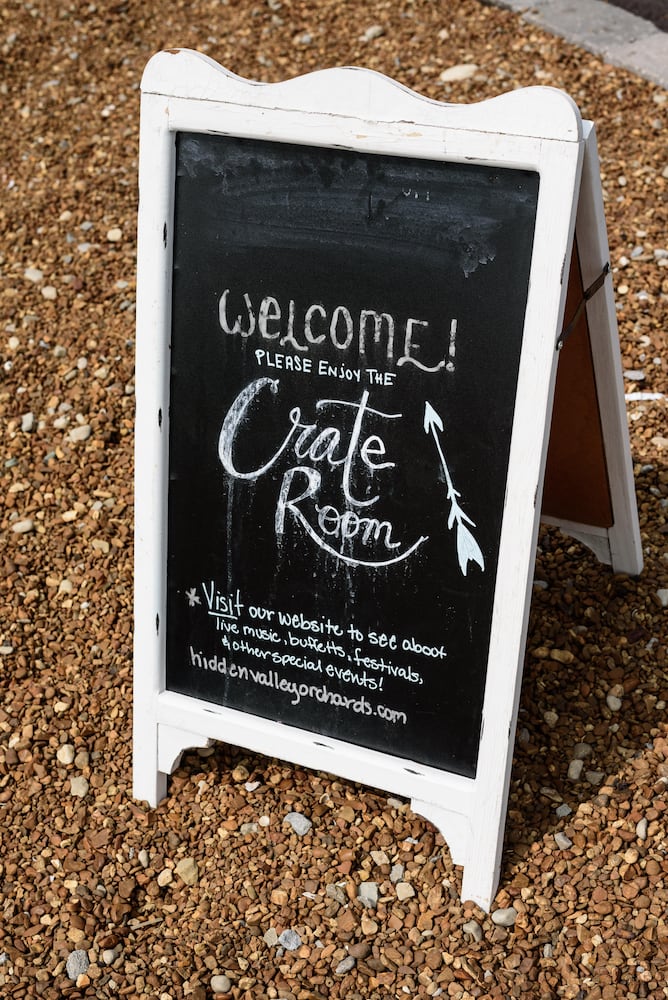 WELCOME!
PLEASE ENJOY THE
Crate
Room
* Visit our website to see aboot
live music, buffetts, festivals,
& other special events!
hiddenvalleyorchards.com